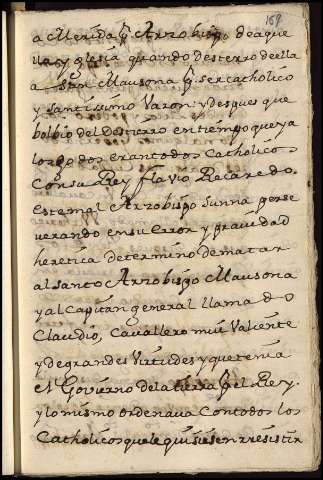 169
a Merida pr Arzobispo de aque
lla yglesia quando desterro de ella
a San Mausona pr ser catholico
y santissimo Varon: y despues que
bolbio del Destierro en tiempo que ya
los godos eran todos Catholicos
Con su Rey flavio Recaredo.
este mal Arzobispo sunna perse
verando en su error y gravedad
heretica determino de matar
al santo Arzobispo Mausona
y al Capitan general llamado
Claudio, Cavallero mui Valiente
y de grandes Virtudes y que tenia
el Goviérno de la tierra pr el Rey.
y lo mismo ordenava Con todos los
Catholicos que le quisiesen rresistir